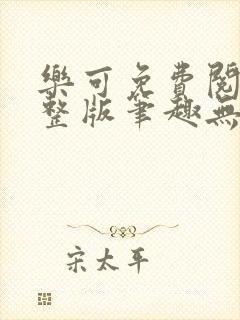 樂可免費閱
整版筆趣無
宋太平